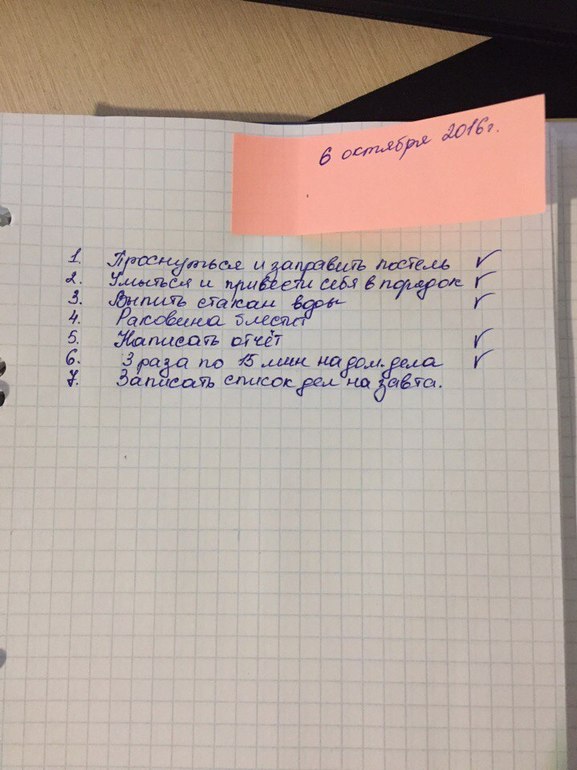 6 октября 2016г.
1. Проснуться и заправить постель ✓
2. Умыться и привести себя в порядок ✓
3. Выпить стакан воды ✓
4. Раковина блестит
5. Написать отчёт ✓
6. 3 раза по 15 мин на дом. дела ✓
7. Записать список дел на завта.